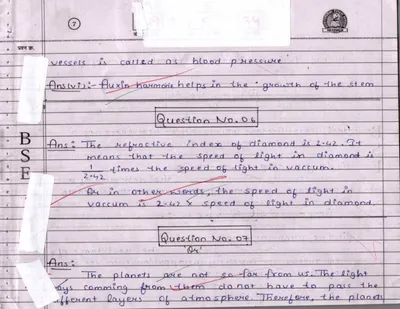 7
प्रश्न क्र.
vessels is called as blood pressure
Ans(vi):- Auxin harmone helps in the growth of the stem
Question No. 06
BSE
Ans: The refractive index of diamond is 2.42. It
means that the speed of light in diamond is
1/2.42 times the speed of light in vaccum.
Or in other words, the speed of light in
vaccum is 2.42 × speed of light in diamond.
Question No. 07
'Or'
Ans:
The planets are not so far from us. The light
ays comming from them do not have to pass the
fferent layers of atmosphere. Therefore, the planets